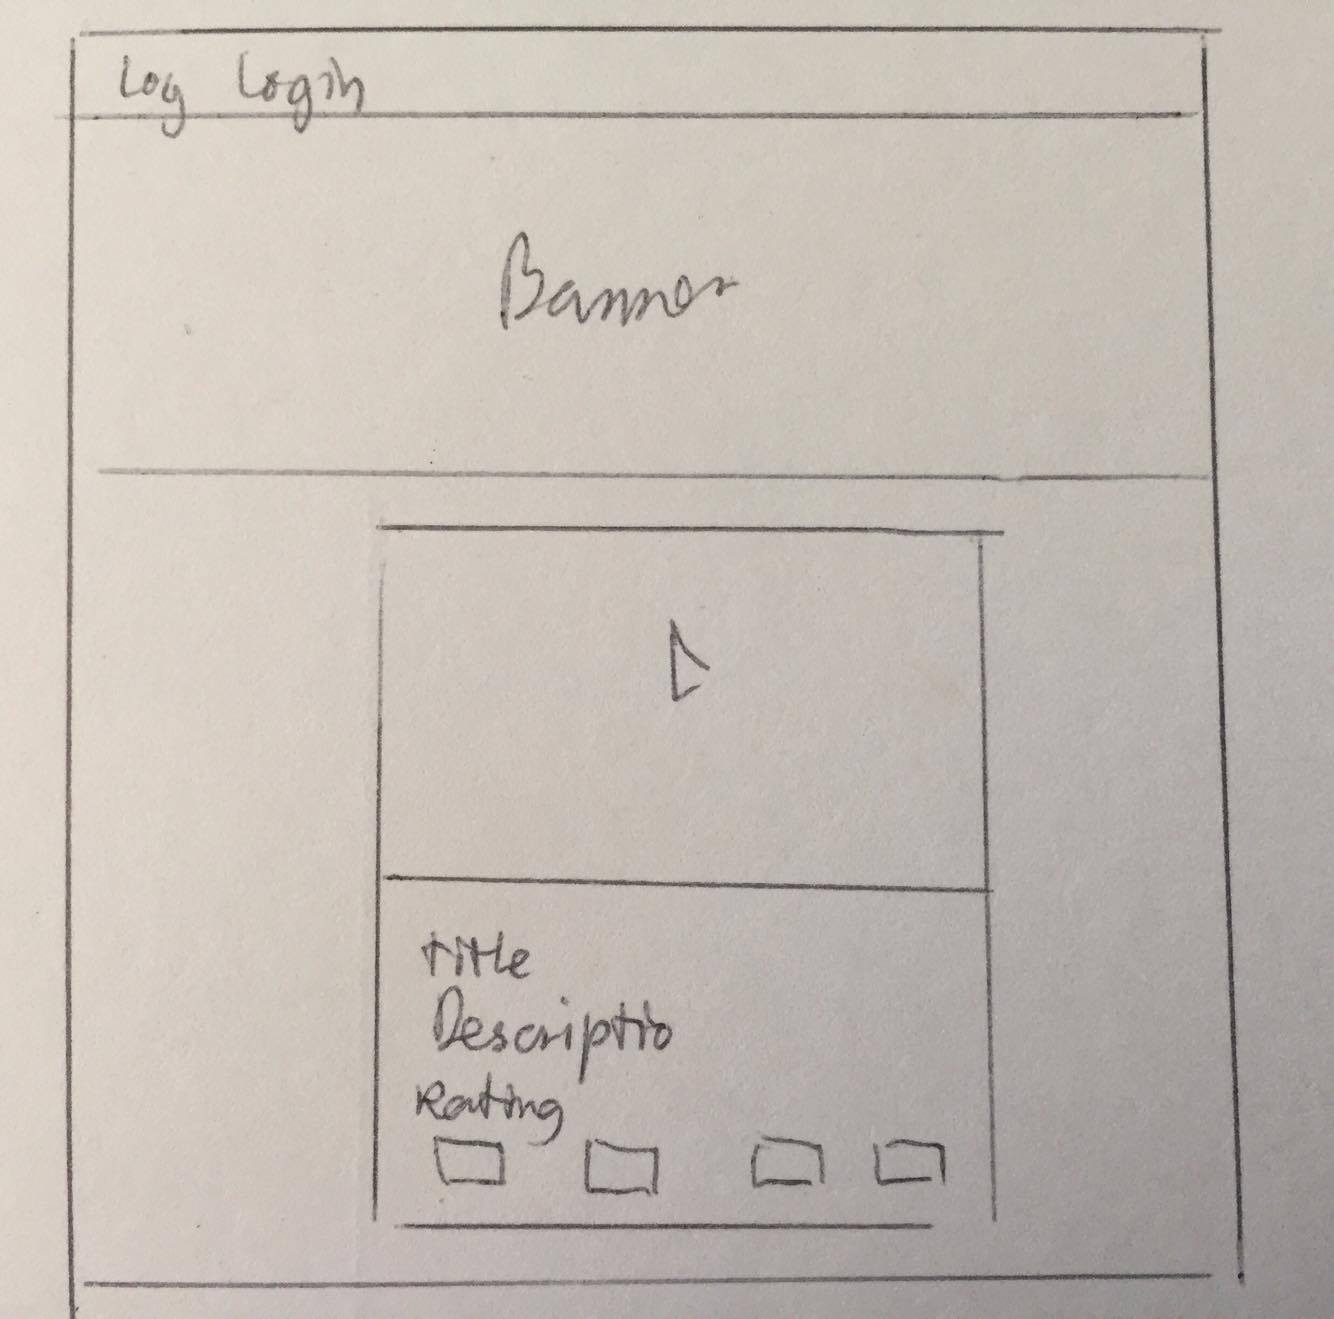 Log Login
Banner
Title
Descriptio
Rating